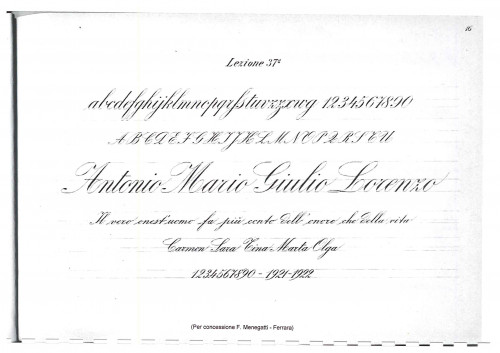 16
Lezione 37ª
abcdefghijklmnopqrsstuvzzxwy 1234567890
A B C D E F G H I J K L M N O P Q R S T U
Antonio Mario Giulio Lorenzo
Il vero onest'uomo fa più conto dell'onore che della vita
Carmen Sara Tina Marta Olga
1234567890 - 1921-1922
(Per concessione F. Menegatti - Ferrara)